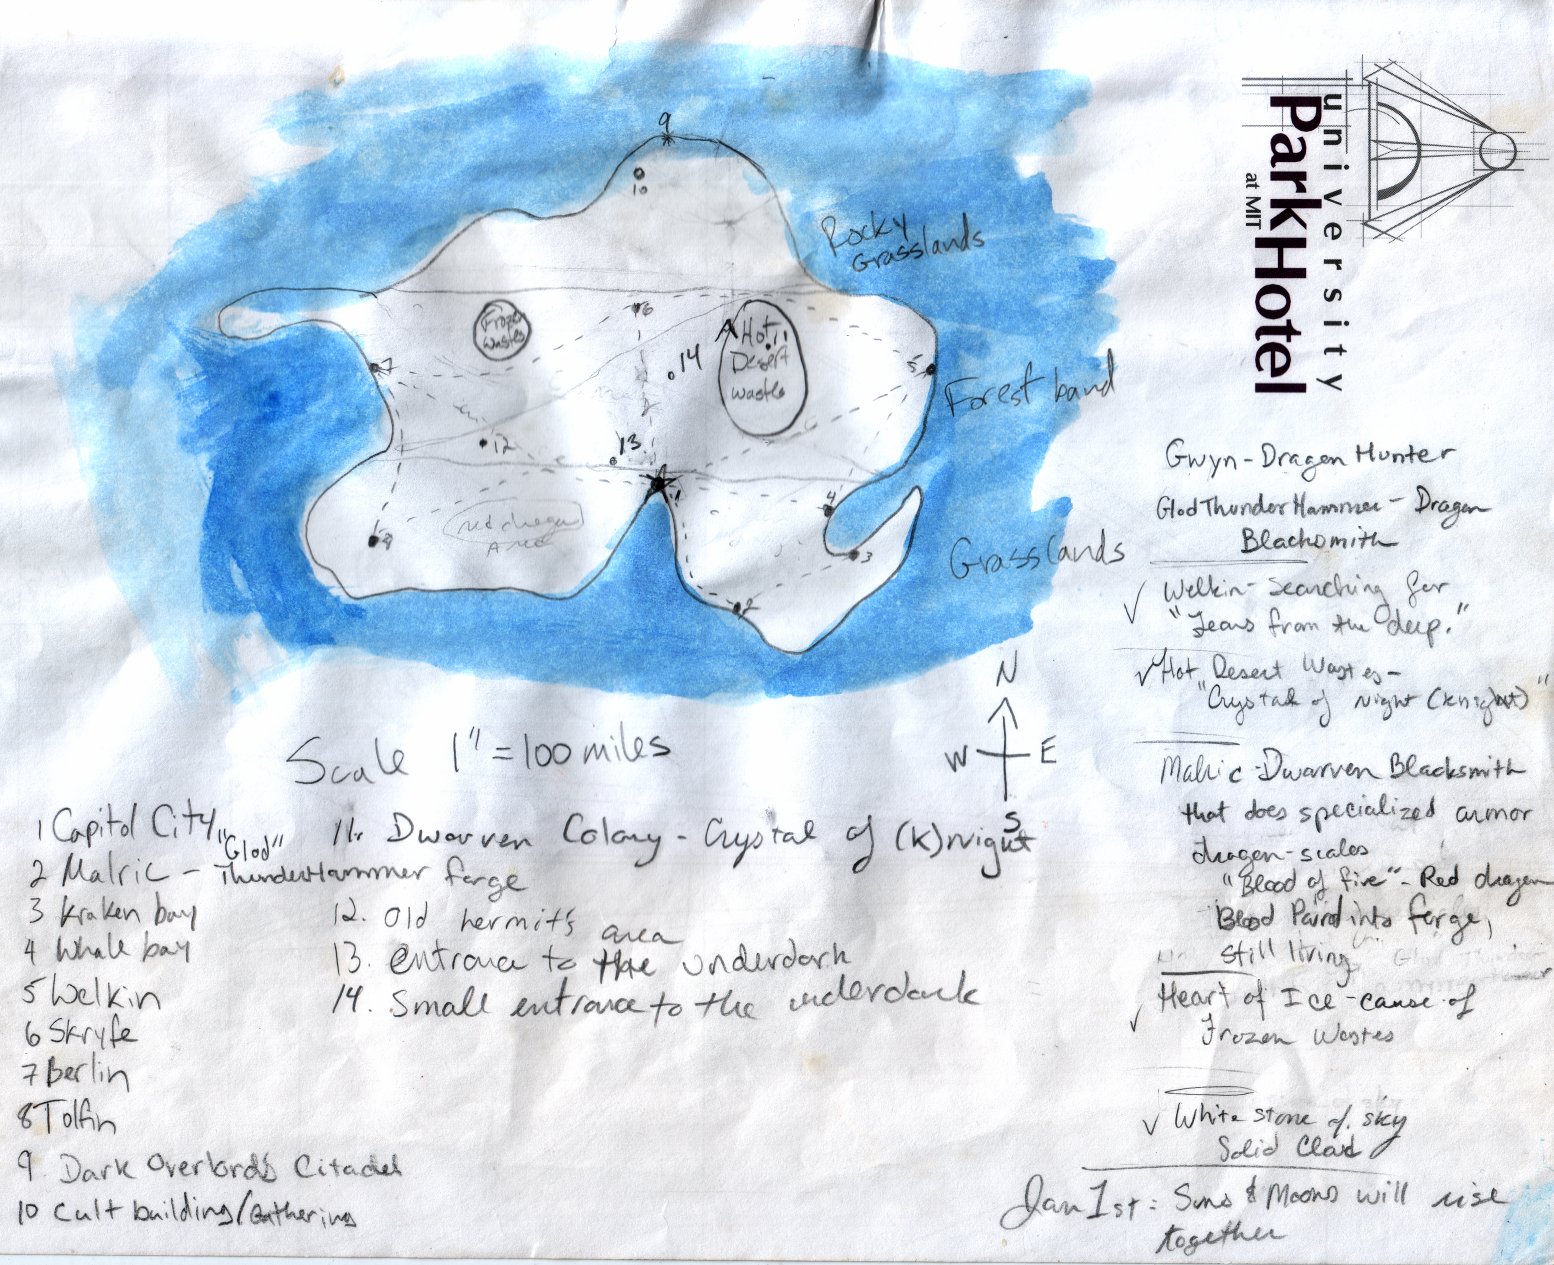 9
10
Rocky
Grasslands
Frozen
Wastes
6
Hot
11
Desert
Wastes
14
5
7
Forest band
12
13
1
4
red dragon
Area
8
3
2
Grasslands
Scale 1" = 100 miles
N
W E
S
1 Capitol City
2 Malric - "Glod" ThunderHammer forge
3 Kraken bay
4 Whale bay
5 Welkin
6 Skryfe
7 Berlin
8 Tolfin
9. Dark Overlord's Citadel
10 Cult building/Gathering
11. Dwarven Colony - Crystal of (K)night
12. Old hermit's area
13. entrance to the underdark
14. Small entrance to the underdark
university
ParkHotel
at MIT
Gwyn - Dragon Hunter
Glod ThunderHammer - Dragon
Blacksmith
Welkin - Searching for
"Tears from the deep."
Hot Desert Wastes -
"Crystal of Night (Knight)"
Malric - Dwarven Blacksmith
that does specialized armor
dragon-scales
"Blood of fire" - Red dragon
Blood Pour'd into forge,
still living
Heart of Ice - cause of
Frozen Wastes
White stone of sky
Solid Cloud
Jan 1st: Suns & Moons will rise
together